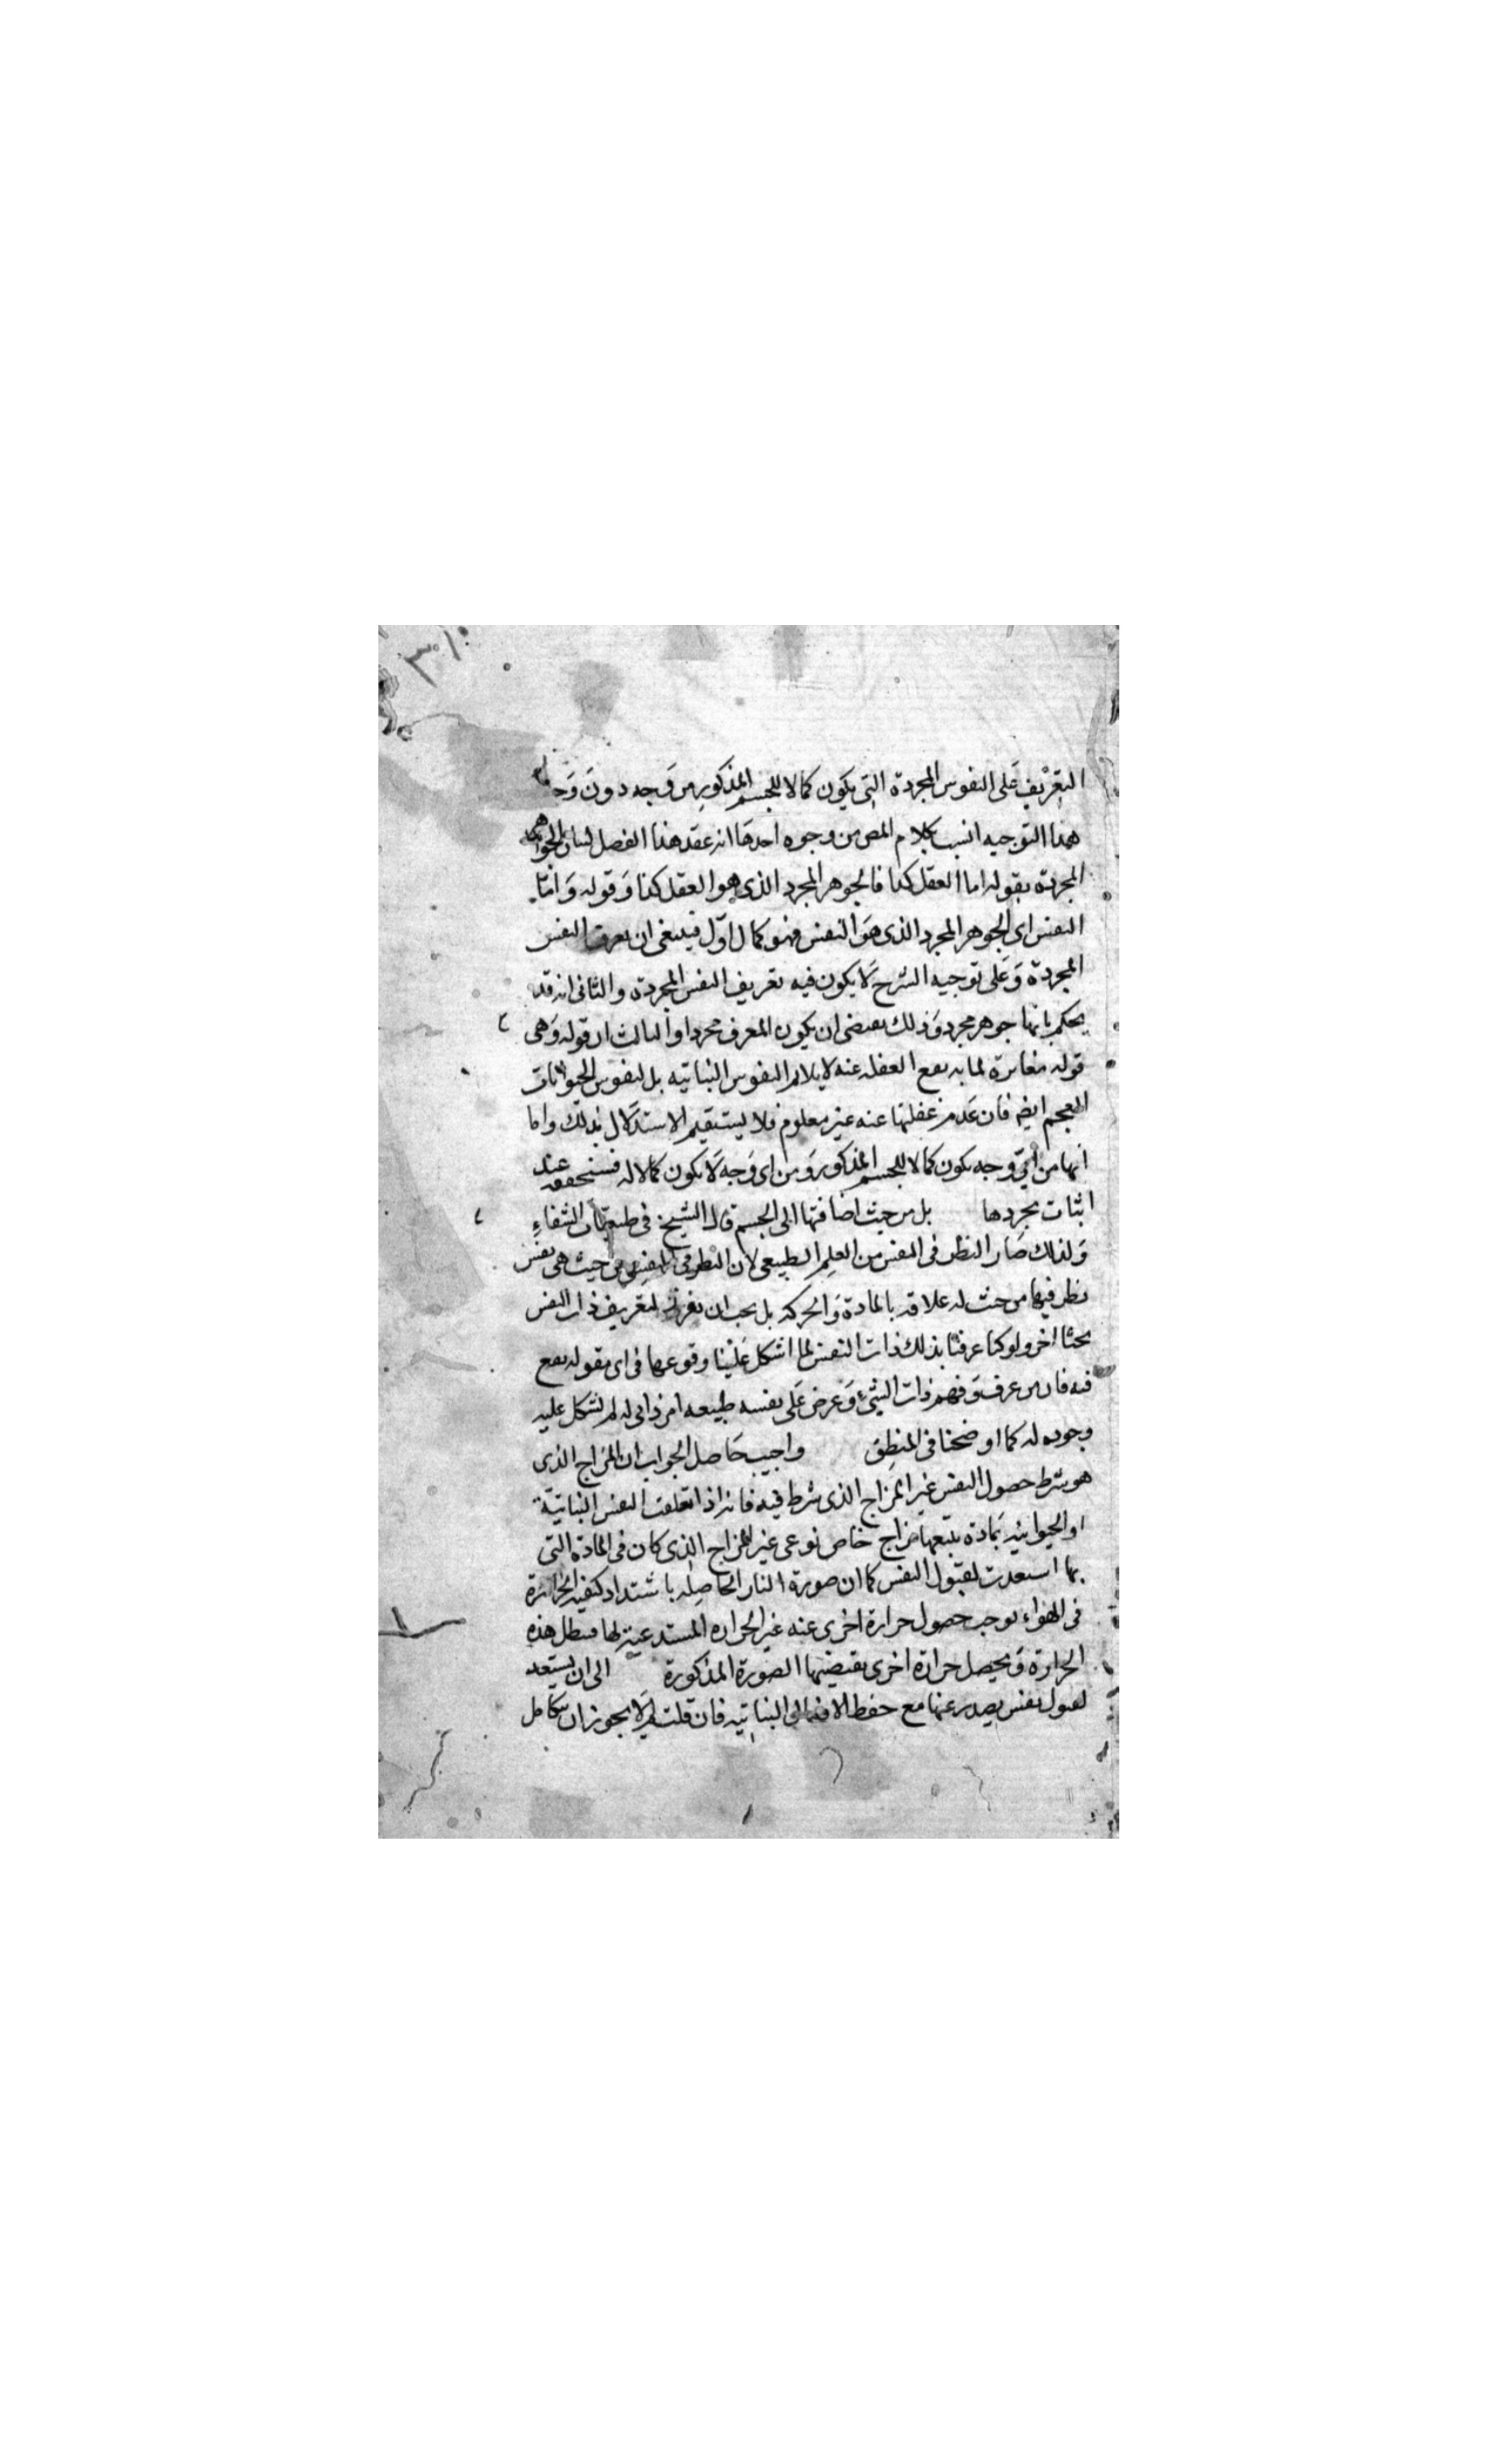 ٣٠١
التعريف على النفوس المجردة التى يكون كمالا للجسم المذكور من وجه دون وجه
هذا التوجيه انسب بكلام المص من وجوه احدها انه عقد هذا الفصل لبيان الجواهر
المجردة بقوله اما العقل كذا فالجوهر المجرد الذى هو العقل كذا وقوله واما
النفس اى الجوهر المجرد الذى هو النفس فهو كمال اول فينبغى ان يعرف النفس
المجردة وعلى توجيه الشرح لا يكون فيه تعريف النفس المجردة والثانى انه قد
يحكم بانها جوهر مجرد وذلك يقتضى ان يكون المعرف مجردا والثالث ان قوله وهى
قوله مغايرة لما به يقع الغفله عنه لا يلايم النفوس النباتيه بل نفوس الحيوانات
العجم ايضه فان عدم غفلتها عنه غير معلوم فلا يستقيم الاستدلال بذلك واما
انها من اى وجه يكون كمالا للجسم المذكور ومن اى وجه لا يكون كمالا له فسنحققه عند
اثبات تجردها بل من حيث اضافتها الى الجسم قال الشيخ فى طبيعيات الشفاء
ولذلك صار النظر فى النفس من العلم الطبيعى لان النظر فى النفس من حيث هى نفس
نظر فيها من حيث له علاقة بالمادة والحركه بل يجب ان نفرد لتعريف ذات النفس
بحثا اخر ولو كنا عرفنا بذلك ذات النفس لما اشكل علينا وقوعها فى اى مقوله يقع
فيه فان من عرف وفهم ذات الشئ وعرض على نفسه طبيعه امر ذاتى له لم يشكل عليه
وجوده له كما اوضحنا فى المنطق واجيب حاصل الجواب ان المزاج الذى
هو شرط حصول النفس غير المزاج الذى شرط فيه فانه اذا تعلقت النفس النباتية
او الحيوانيه بمادة يتبعها مزاج خاص نوعى غير المزاج الذى كان فى المادة التى
بها استعدت لقبول النفس كما ان صورة النار الحاصله باشتداد كيفيه الحرارة
فى الهواء يوجب حصول حرارة اخرى عنه غير الحراره المستدعية لها فيبطل هذه
الحرارة ويحصل حرارة اخرى يقتضيها الصورة المذكورة الى ان يستعد
لقبول نفس يصدر عنها مع حفظ الافعال النباتيه فان قلت لم لا يجوز ان يتكامل